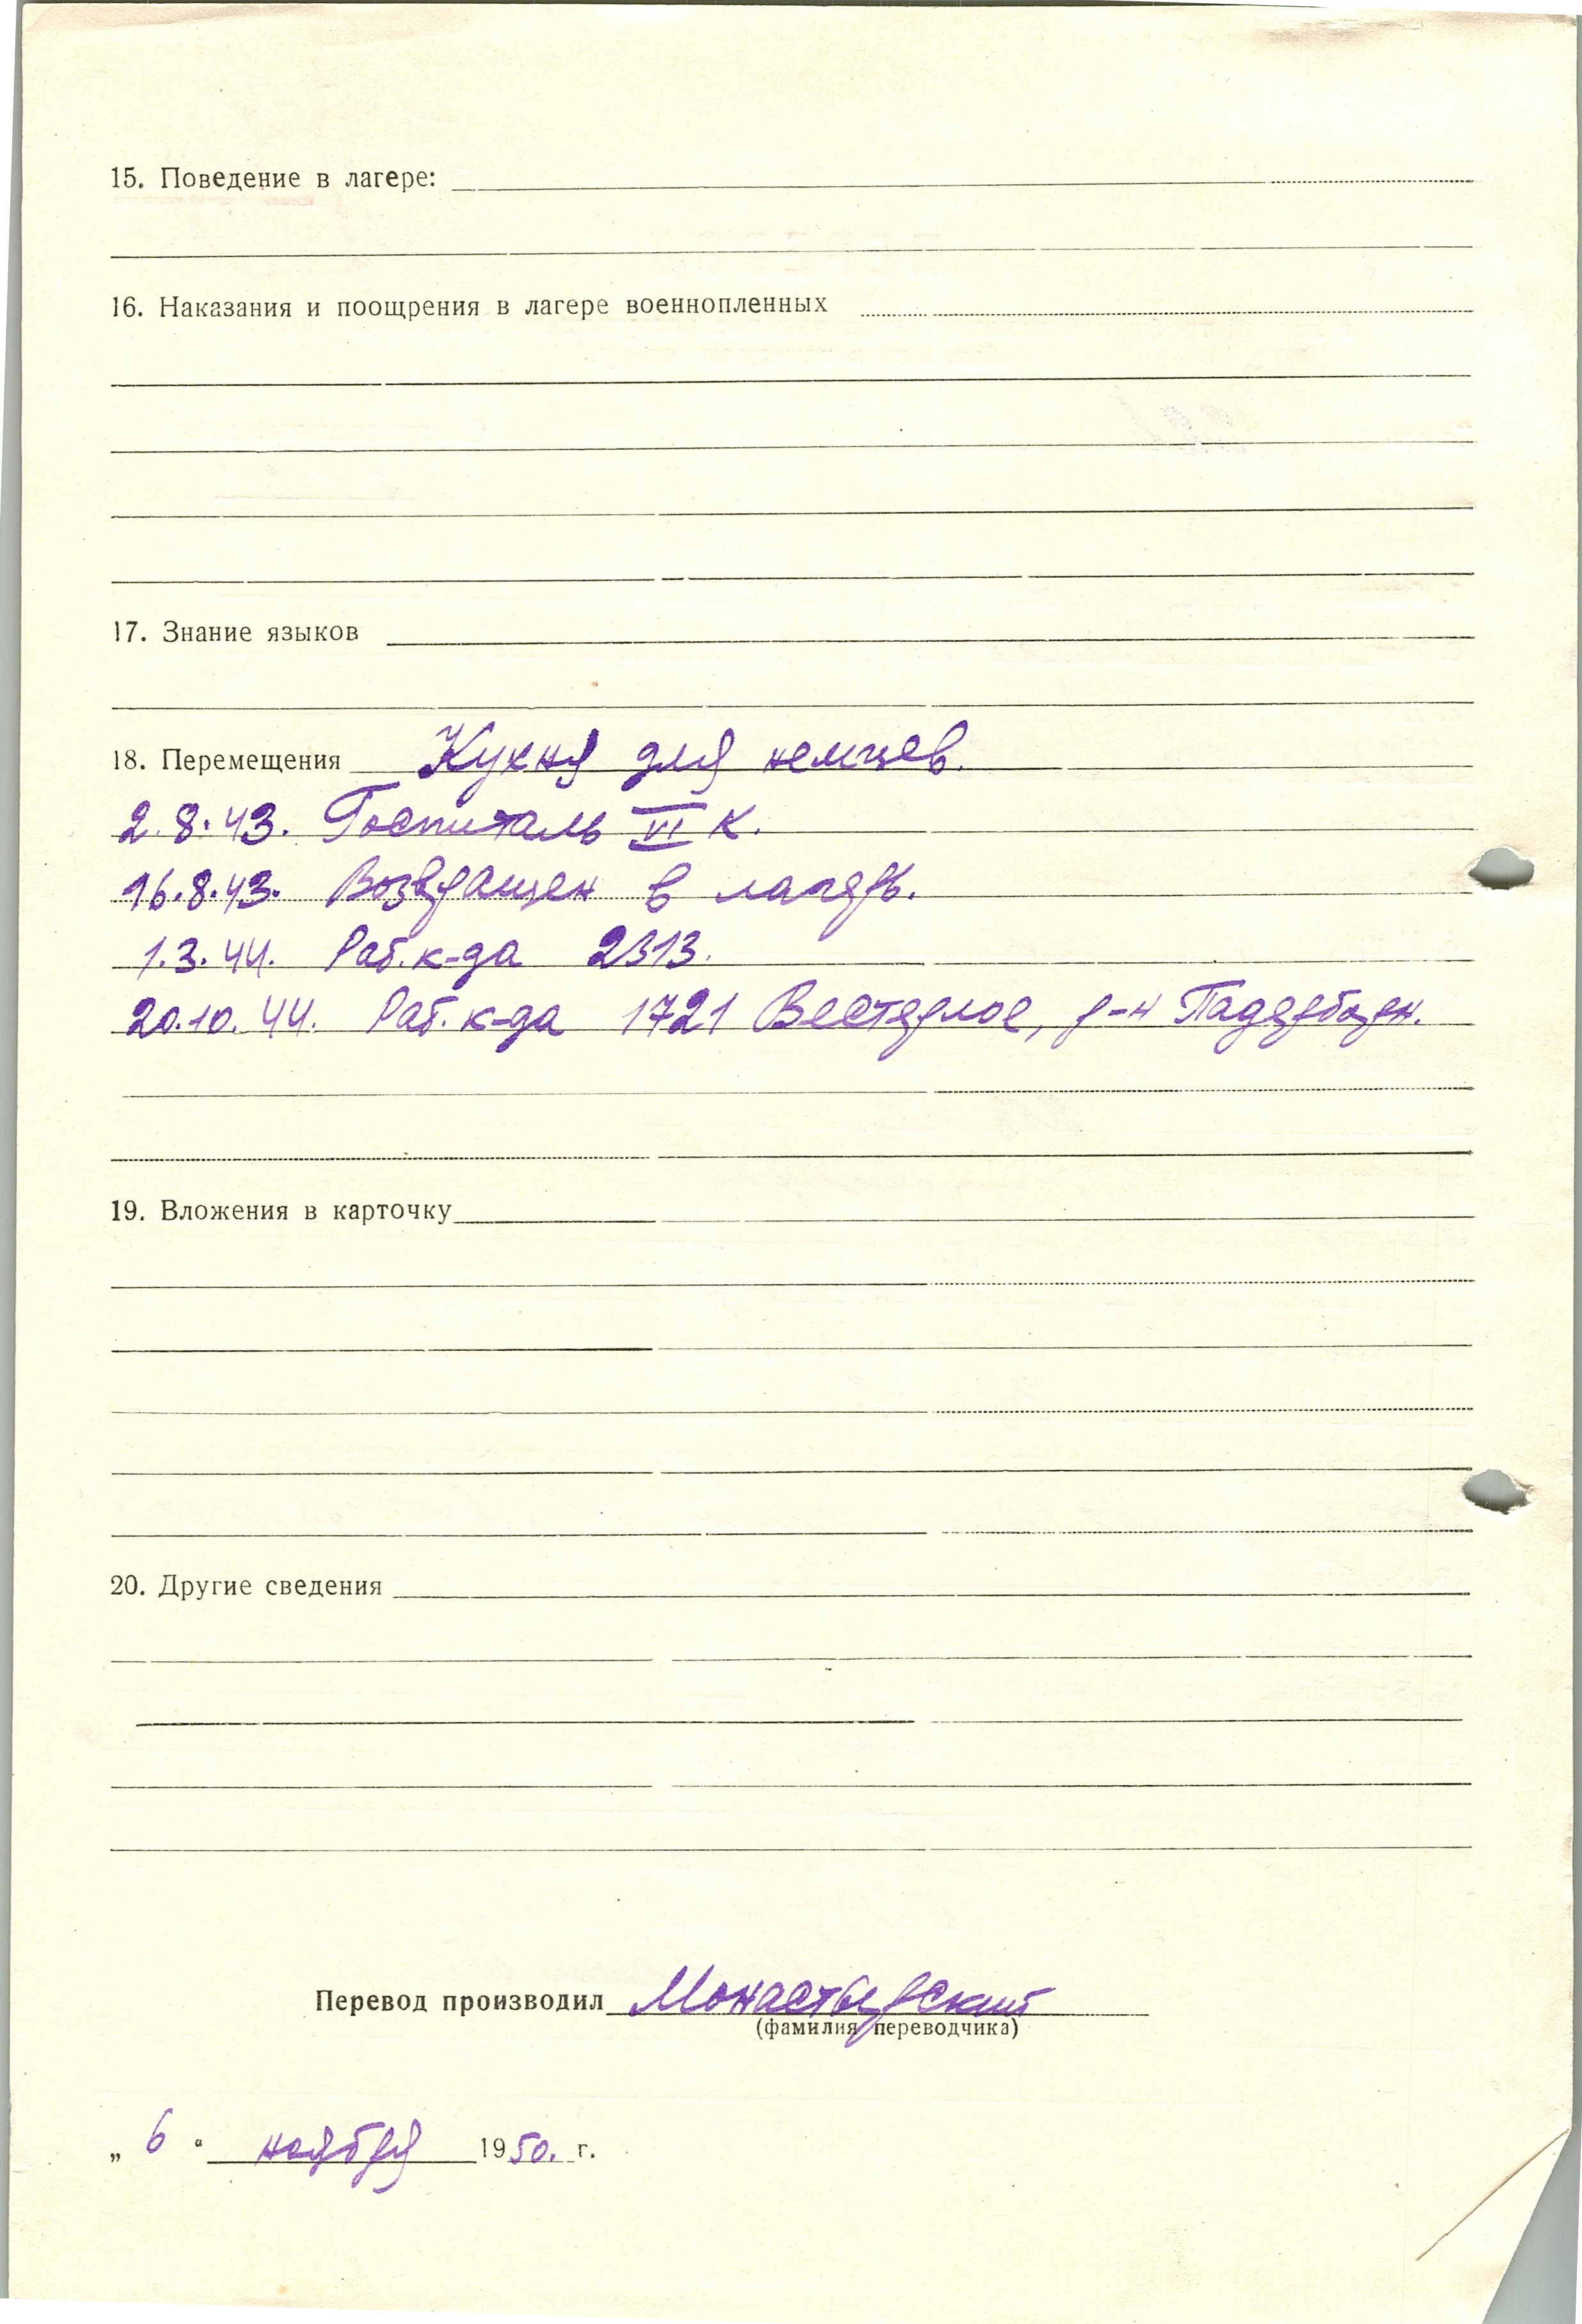 15. Поведение в лагере:
16. Наказания и поощрения в лагере военнопленных
17. Знание языков
18. Перемещения Кухня для немцев.
2.8.43. Госпиталь VI К.
16.8.43. Возвращен в лагерь.
1.3.44. Раб. к-да 2313.
20.10.44. Раб. к-да 1721 Вестерлое, р-н Падерборн.
19. Вложения в карточку
20. Другие сведения
Перевод производил Монастырский
(фамилия переводчика)
„ 6 “ ноября 1950. г.